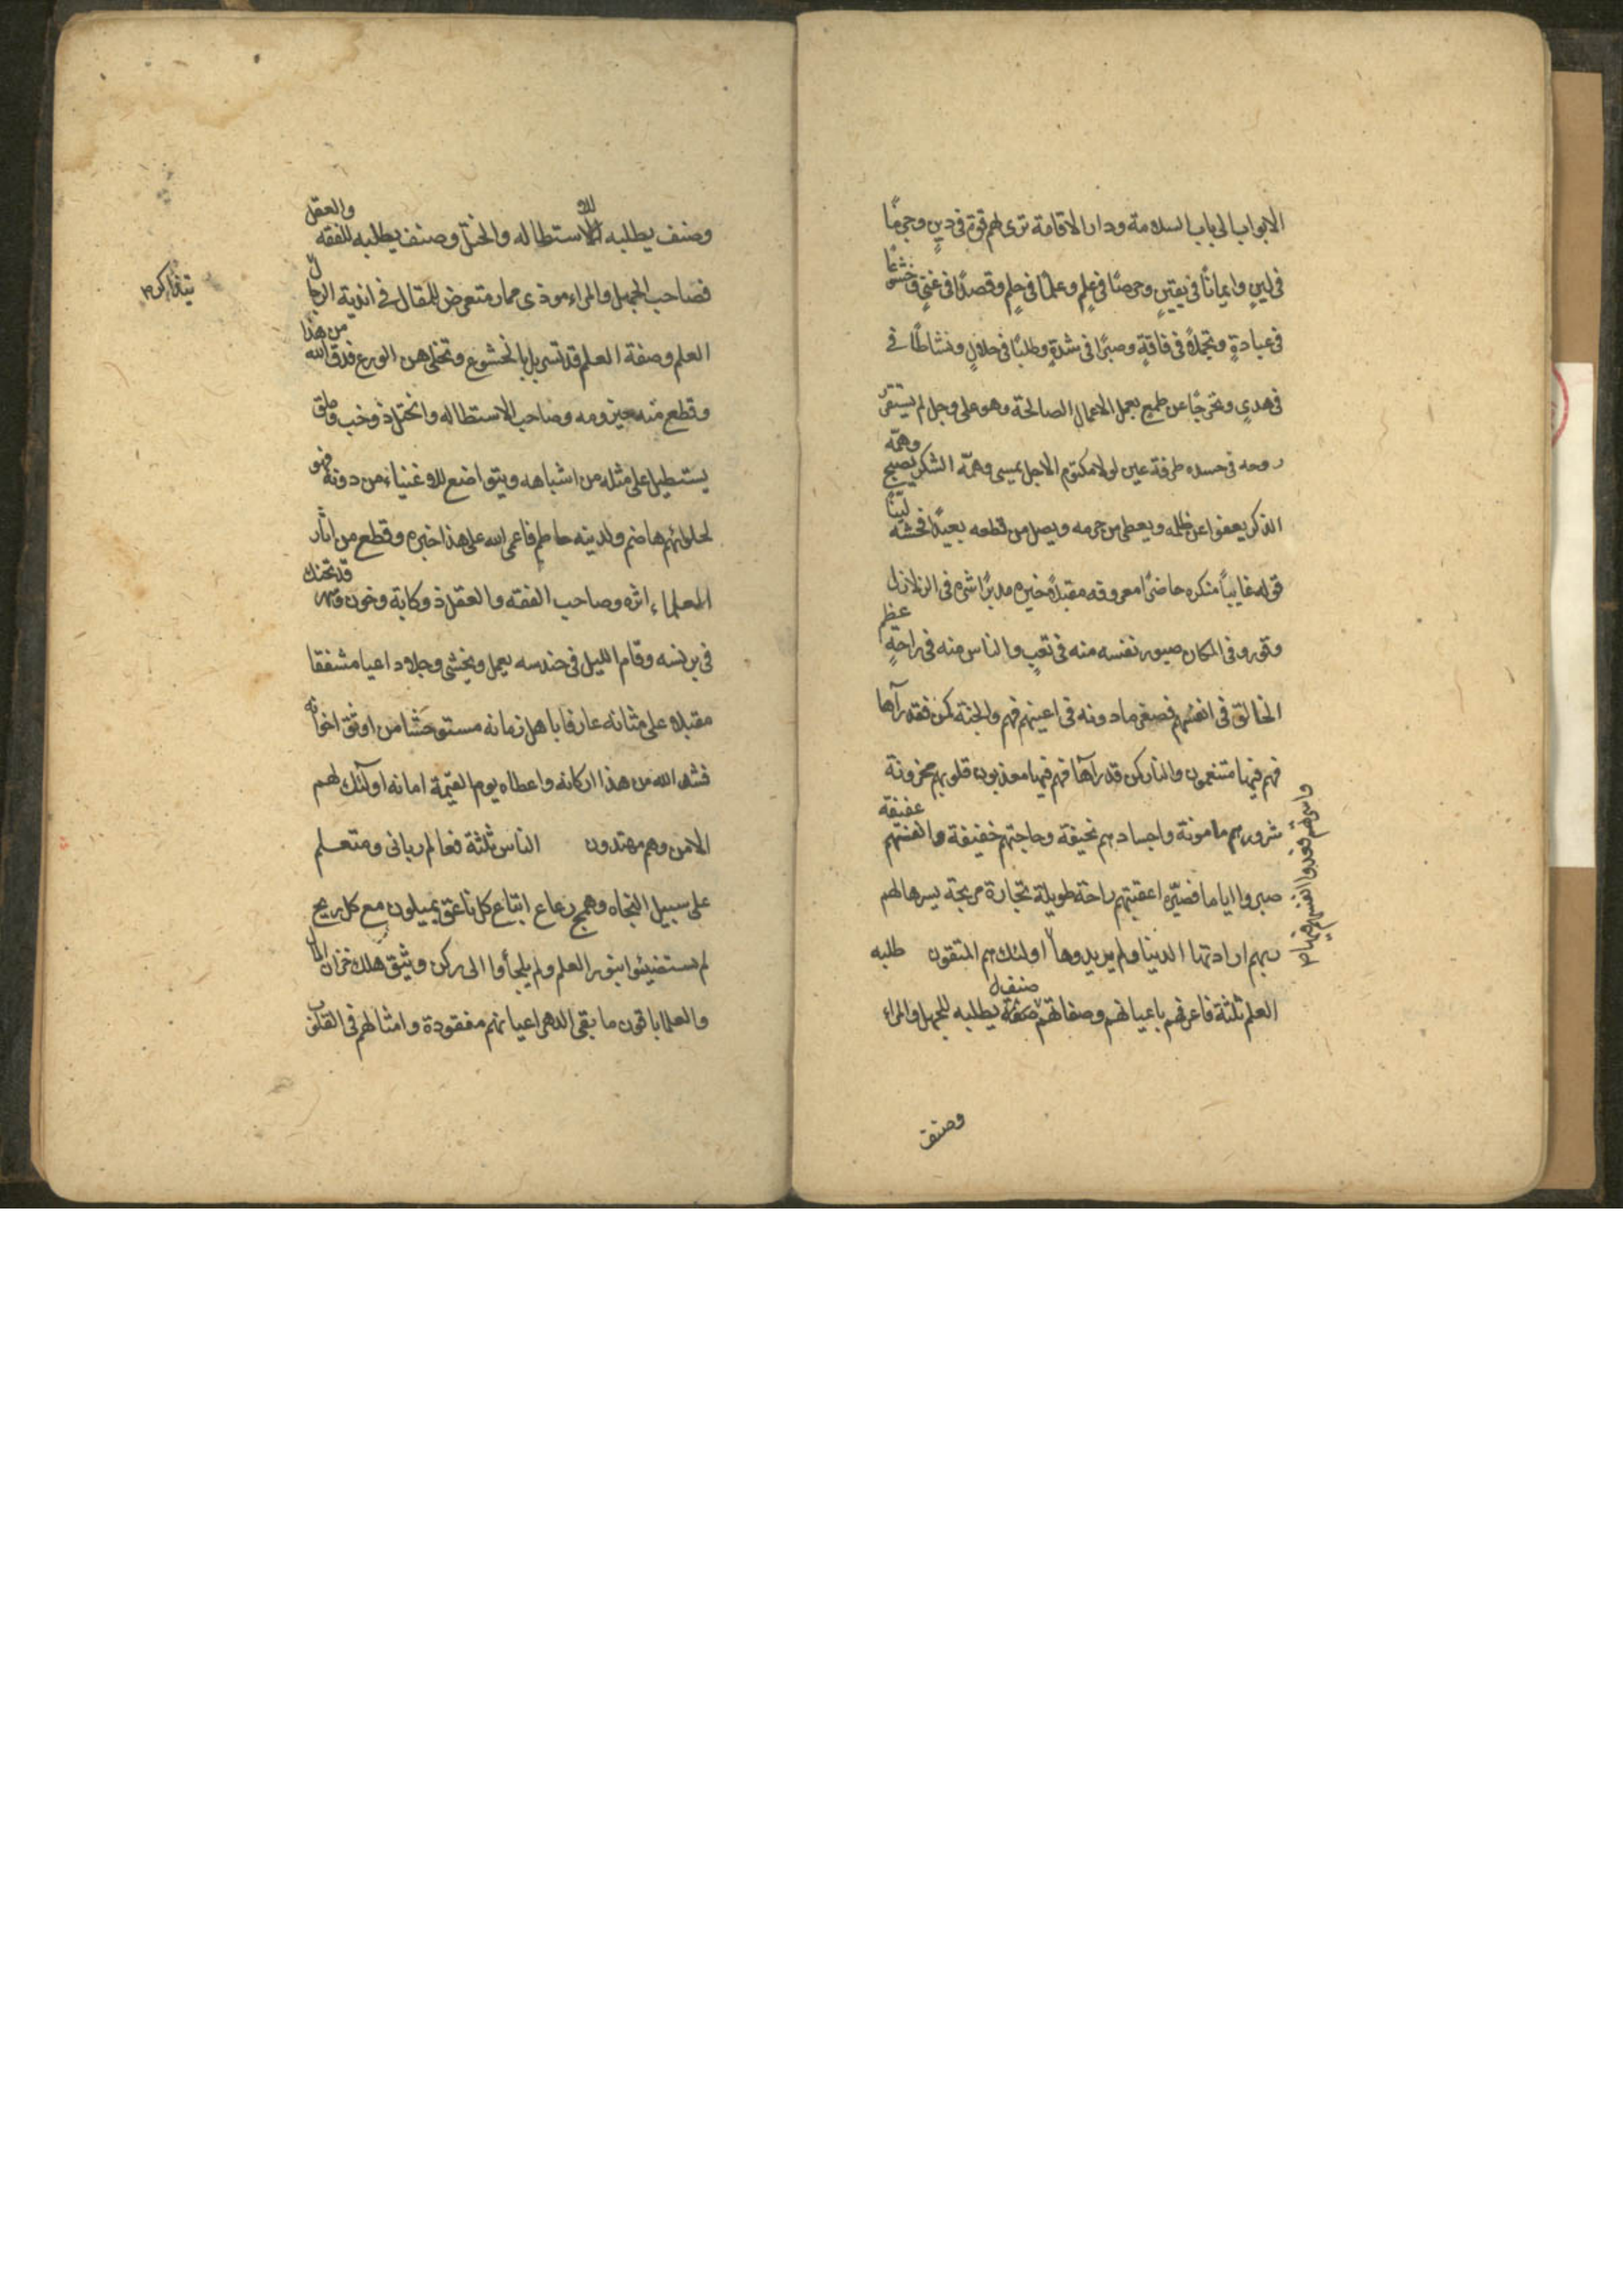 الابواب الى باب السلامة ودار الاقامة ترى لهم قوة فى دينٍ وحزمًا
فى لينٍ وايمانًا فى يقينٍ وحرصًا فى علمٍ وعلمًا فى حلمٍ وقصدًا فى غنىٍ وخشوعًا
فى عبادةٍ وتجملاً فى فاقةٍ وصبرًا فى شدةٍ وطلبًا فى حلالٍ ونشاطًا فى
فى هدىٍ وتحرجًا عن طمع يعمل الاعمال الصالحة وهو على وجل لم يستقر
روحه فى جسده طرفة عين لولا مكتوم الاجل يمسى وهمّه الشكر يصبح وهمّه
الذكر يعفوا عن ظلمه ويعطى من حرمه ويصل من قطعه بعيدًا فحشه ليّنًا
قوله غايبًا منكره حاضرًا معروفه مقبلاً خيره مدبرًا شره فى الزلازل
وقور وفى المكان صبور نفسه منه فى تعبٍ والناس منه فى راحةٍ عظم
الخالق فى انفسهم فصغر مادونه فى اعينهم فهم والجنة كمن فقد رآها
فهم فيها متنعمون والنار كمن قد رآها فهم فيها معذبون قلوبهم محزونة
شرورهم مامونة واجسادهم نحيفة وحاجتهم خفيفة وانفسهم عفيفة
صبروا اياما قصيرة اعقبتهم راحة طويلة تجارة مربحة يسرها لهم
ربهم ارادتهم الدنيا ولم يريدوها اولئك هم المتقون طلبه
واسرتهم ففدوا انفسهم منها
العلم ثلثة فاعرفهم باعيانهم وصفاتهم صنف يطلبه للجهل والمراء
وصنف
وصنف يطلبه للاستطاله والختل وصنف يطلبه للفقه والعقل
فصاحب الجهل والمراء موذى ممار متعرض للمقال فى اندية الرجال
بتذاكر
العلم وصفة العلم قد تسربل بالخشوع وتخلى من الورع فدق الله من هذا
وقطع منه حيزومه وصاحب الاستطاله والختل ذو خب وملق
يستطيل على مثله من اشباهه ويتواضع للاغنياء من دونه فهو
لحلوائهم هاضم ولدينه حاطم فاعمى الله على هذا خبره وقطع من اثار
العلماء اثره وصاحب الفقه والعقل ذو كابة وحزن وسهر قد تحنك
فى برنسه وقام الليل فى حندسه يعمل ويخشى وجلا داعيا مشفقا
مقبلا على شانه عارفا باهل زمانه مستوحشا من اوثق اخوانه
فشد الله من هذا اركانه واعطاه يوم القيمة امانه اولئك لهم
الامن وهم مهتدون الناس ثلثة فعالم ربانى ومتعلم
على سبيل النجاه وهمج رعاع اتباع كل ناعق يميلون مع كل ريح
لم يستضيئوا بنور العلم ولم يلجأوا الى ركن وثيق هلك خزان المال
والعلما باقون ما بقى الدهر اعيانهم مفقودة وامثالهم فى القلوب